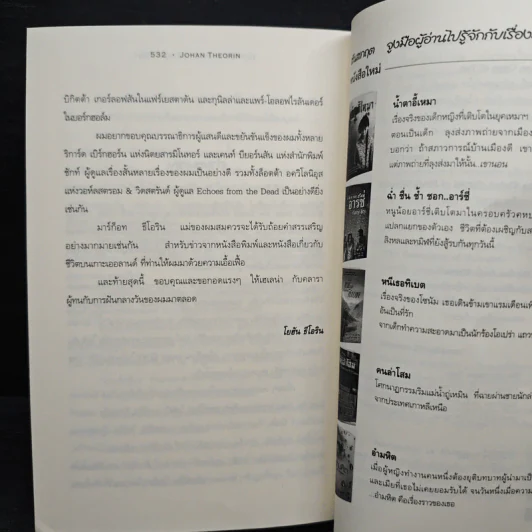 532 • JOHAN THEORIN
บิกิตต้า เกอร์ลอฟสันในแฟร์เยสตาดัน และกุนิลล่าและแพร์-โอลอฟไรลันเดอร์
ในบอร์กฮอล์ม
ผมอยากขอบคุณบรรณาธิการผู้แสนดีและขยันขันแข็งของผมทั้งหลาย
ริการ์ด เบิร์กฮอร์น แห่งนิตยสารมิโนทอร์ และเคนท์ บียอร์นสัน แห่งสำนักพิมพ์
ชักท์ ผู้ดูแลเรื่องสั้นหลายเรื่องของผมเป็นอย่างดี รวมทั้งล็อตต้า อควิโลนิอุส
แห่งวอห์ลสตรอม & วิดสตรันด์ ผู้ดูแล Echoes from the Dead เป็นอย่างดียิ่ง
เช่นกัน
มาร์ก็อท ธีโอริน แม่ของผมสมควรจะได้รับถ้อยคำสรรเสริญ
อย่างมากมายเช่นกัน สำหรับข่าวจากหนังสือพิมพ์และหนังสือเกี่ยวกับ
ชีวิตบนเกาะเออลานด์ ที่ท่านให้ผมมาด้วยความเอื้อเฟื้อ
และท้ายสุดนี้ ขอบคุณและขอกอดแรงๆ ให้เฮเลน่า กับคลารา
ผู้ทนกับการฝันกลางวันของผมมาตลอด
โยฮัน ธีโอริน
จูงมือผู้อ่านไปรู้จักกับเรื่อง
หนังสือใหม่
น้ำตาอี้เหมา
เรื่องจริงของเด็กหญิงที่เติบโตในยุคเหมาฯ
ตอนเป็นเด็ก ลุงส่งภาพถ่ายจากเมือง
บอกว่า ถ้าสภาวการณ์บ้านเมืองดี เขา
แต่ภาพถ่ายที่ลุงส่งมาให้นั้น..เขานอน
ฉ่ำ ชื่น ช้ำ ชอก..อาร์ซี่
หนูน้อยอาร์ซี่เติบโตมาในครอบครัวคห
แปลกแยกของตัวเอง ชีวิตที่ต้องเผชิญกับส
ลิงหลและทมิฬที่ยังสู้รบกันทุกวันนี้
หนีเธอทิเบต
เรื่องจริงของโซนัม เธอเดินข้ามเขาแรมเดือนเพื่
อันเป็นที่รัก
จากเด็กทำความสะอาดมาเป็นนักร้องโอเปร่า แถม
คนล่าโสม
โศกนาฏกรรมริมแม่น้ำถู่เหมิน ที่ฉายผ่านชายนักล่
จากประเทศเกาหลีเหนือ
อำมหิต
เมื่อผู้หญิงทำงานคนหนึ่งต้องยุติบทบาทผู้นำมาเป็
และเมียที่เธอไม่เคยยอมรับได้ จนวันหนึ่งเมื่อความ
..อำมหิต คือเรื่องราวของเธอ